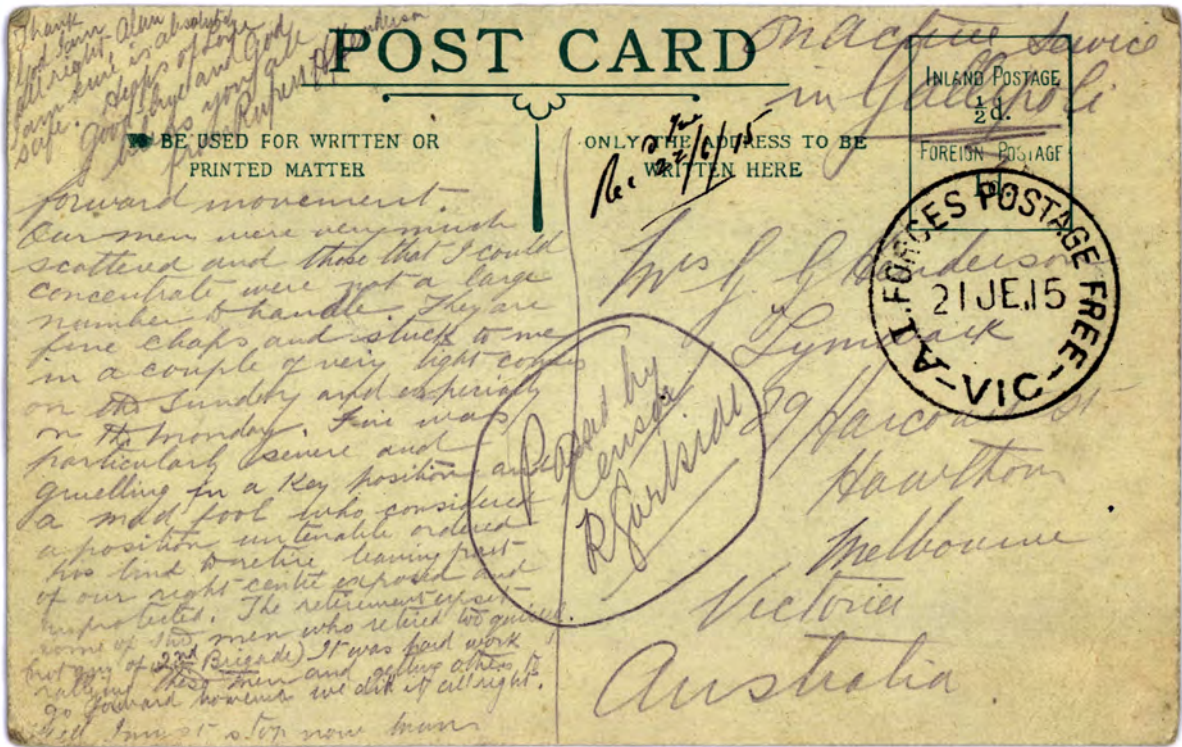 Thank
God I am
all right. Alan
I am sure is absolutely
safe. Heaps of Love
Goodbye and God
bless you all
from Rupert A Henderson
POST CARD
On Active Service
in Gallipoli
INLAND POSTAGE
½d.
FOREIGN POSTAGE
1d.
BE USED FOR WRITTEN OR
PRINTED MATTER
ONLY THE ADDRESS TO BE
WRITTEN HERE
Rec 22/6/15
A.I. FORCES POSTAGE FREE
21 JE.15
-VIC-
forward movement.
Our men were very much
scattered and those that I could
concentrate were not a large
number to handle. They are
fine chaps and stuck to me
in a couple of very tight corners
on the Sunday and especially
on the Monday. Fire was
particularly severe and
gruelling in a key position and
a mad fool who considered
a position untenable ordered
his line to retire leaving part
of our right centre exposed and
unprotected. The retirement upset
some of the men who retired too quickly.
(not any of 2nd Brigade) It was hard work
rallying these men and getting others to
go forward however we did it all right.
Well I must stop now
Passed by
Censor
R Gartside
Mrs G. G Henderson
Lymbrook
89 Harcourt St
Hawthorn
Melbourne
Victoria
Australia